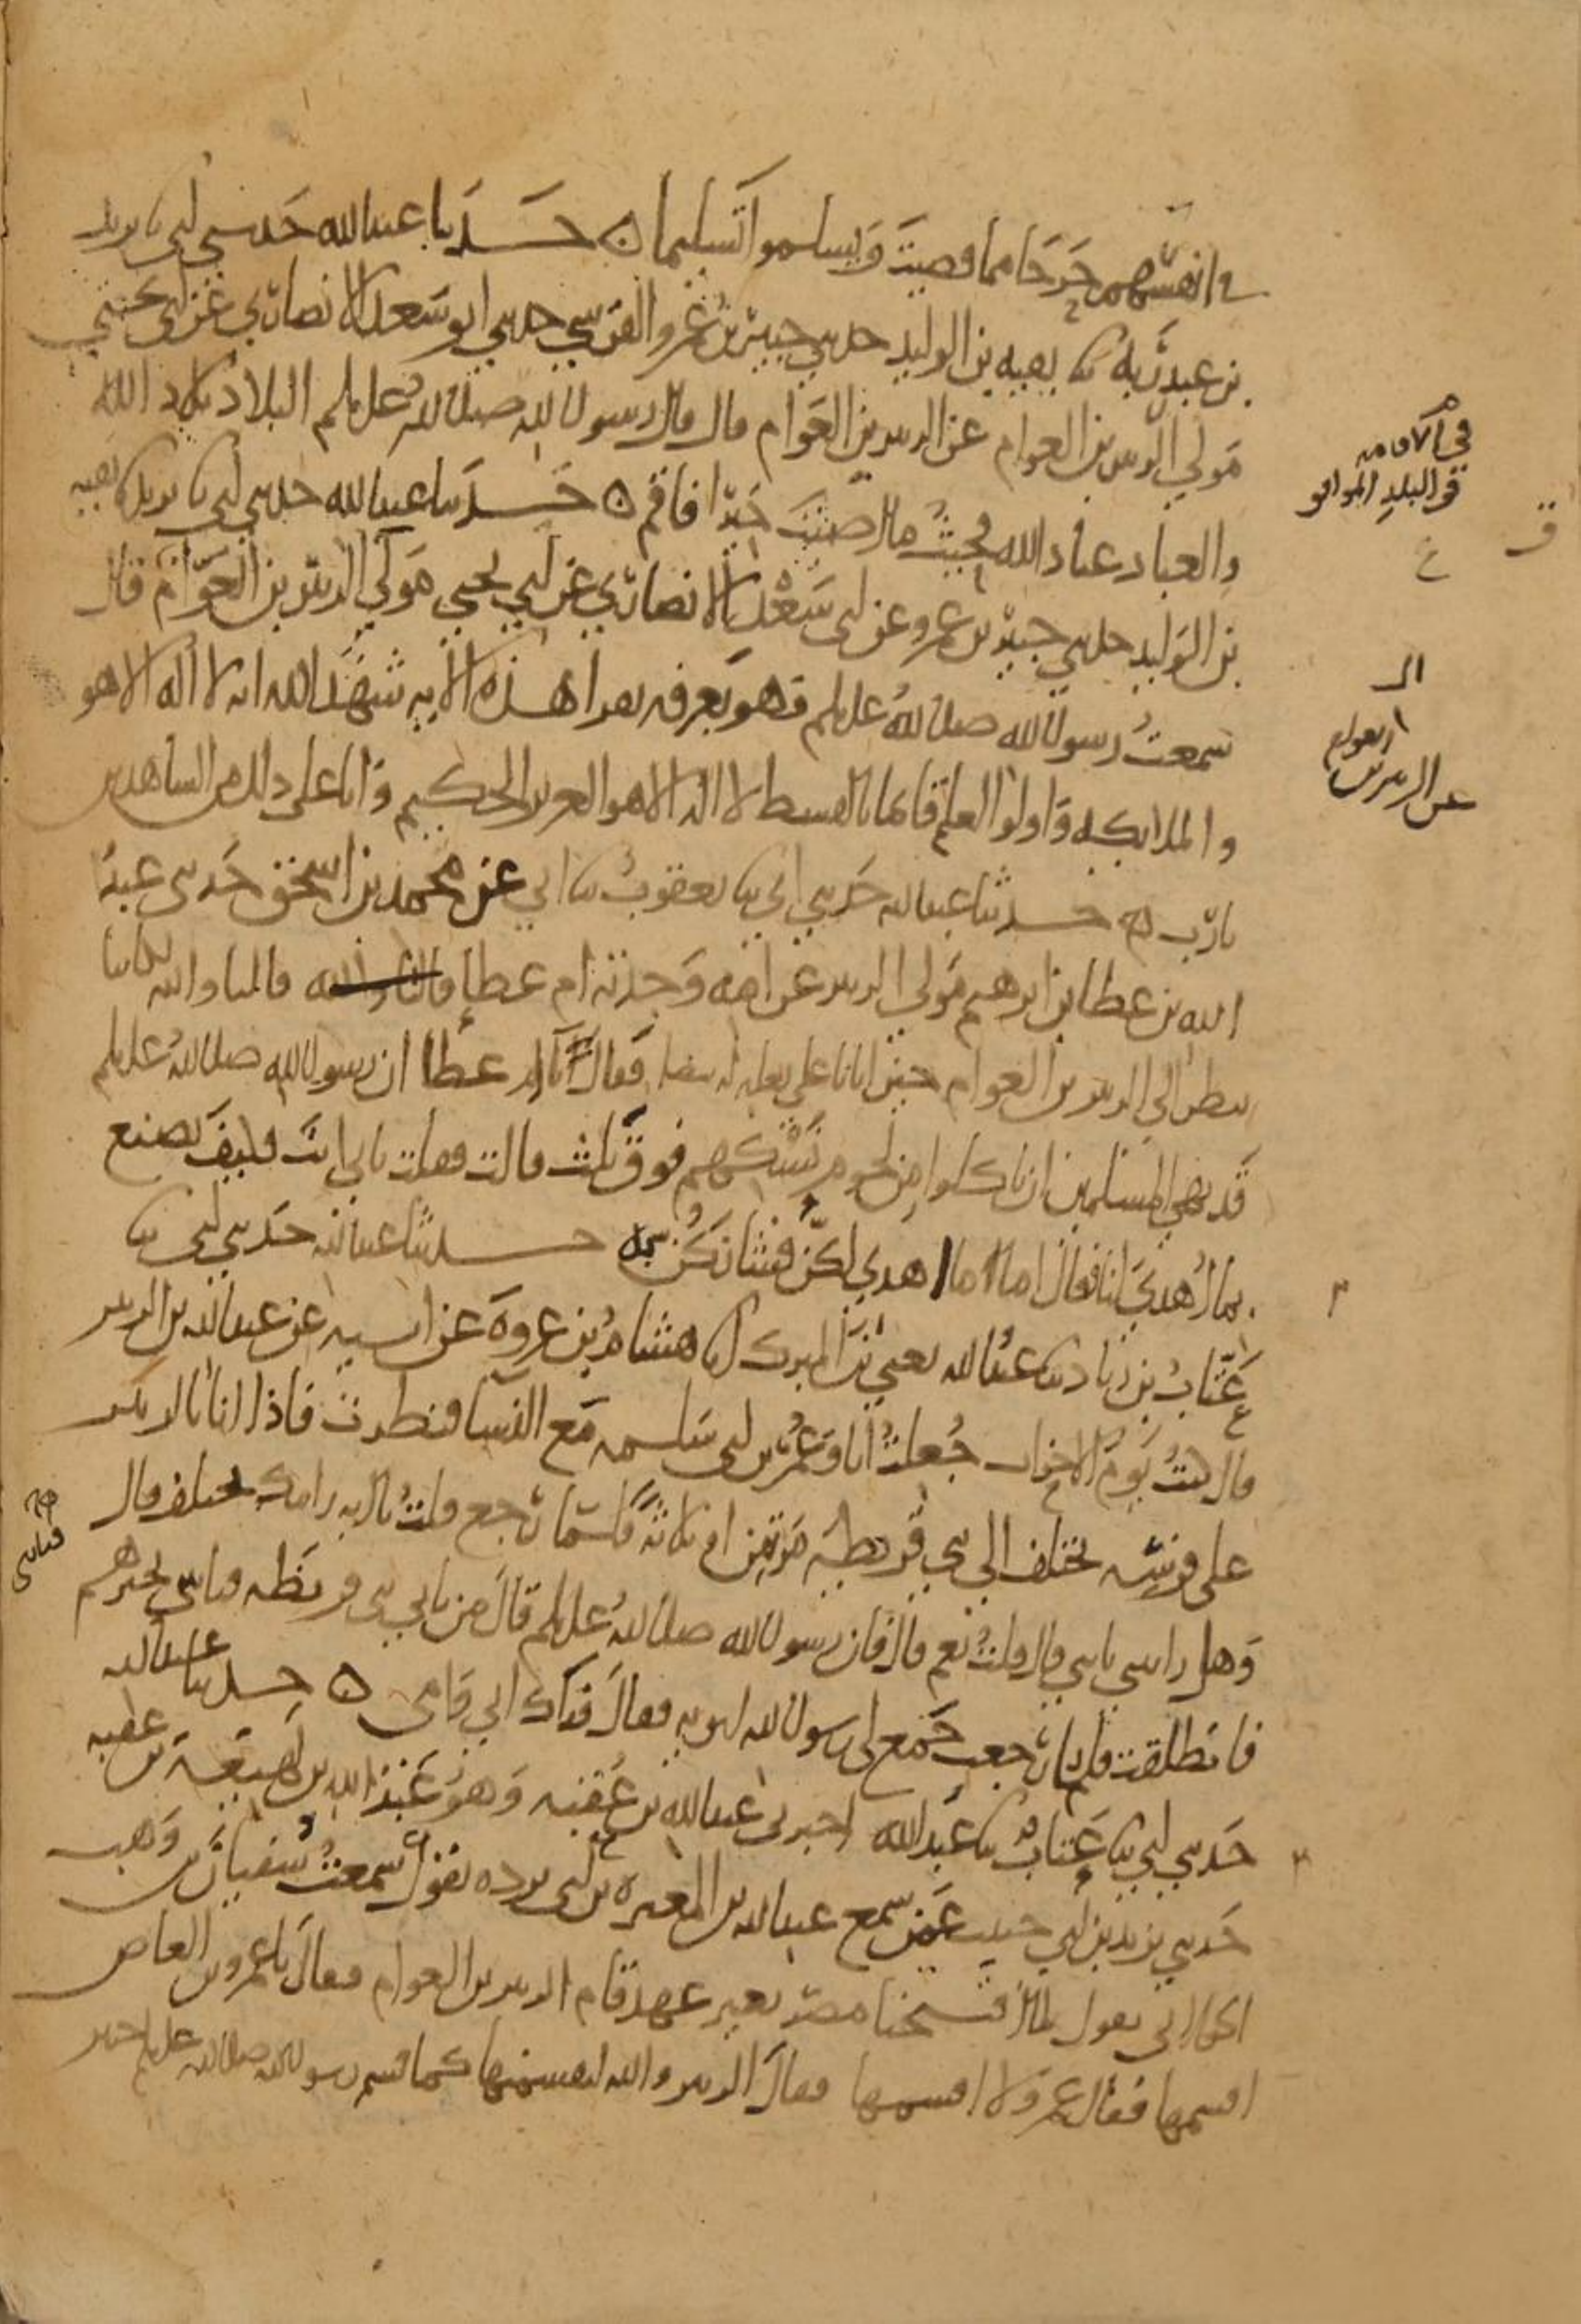 في انفسهم حرجا مما قضيت ويسلموا تسليما ه حدثنا عبدالله حدثني ابي ثنا يزيد
بن عبد ربه ثنا بقية بن الوليد حدثني جبير بن عمرو القرشي حدثني ابو سعد الانصاري عن ابي يحيى
مولى ال الزبير بن العوام عن الزبير بن العوام قال قال رسول الله صلى الله عليه وسلم البلاد بلاد الله
والعباد عباد الله فحيث ما اصبت خيرا فاقم ه حدثنا عبدالله حدثني ابي ثنا يزيد ثنا بقية
بن الوليد حدثني جبير بن عمرو عن ابي سعد الانصاري عن ابي يحيى مولى ال الزبير بن العوام قال
سمعت رسول الله صلى الله عليه وسلم وهو بعرفه يقرا هذه الايه شهد الله انه لا اله الا هو
والملائكه واولوا العلم قائما بالقسط لا اله الا هو العزيز الحكيم وانا على ذلك من الشاهدين
يا رب ه حدثنا عبدالله حدثني ابي ثنا يعقوب ثنا ابي عن محمد بن اسحق حدثني عبد
الله بن عطا بن ابرهيم مولى الزبير عن امه وجدته ام عطا قالتا والله قالتا والله لكاننا
ننظر الى الزبير بن العوام حين اتانا على بغله له بيضا فقال يا ام عطا ان رسول الله صلى الله عليه وسلم
قد نهى المسلمين ان ياكلوا من لحوم نسكهم فوق ثلث قالت فقلت بابي انت فكيف نصنع
بما اهدي لنا فقال اما ما اهدي لكن فشانكن به حدثنا عبدالله حدثني ابي ثنا
عتاب بن زياد ثنا عبدالله يعني بن المبرك انا هشام بن عروة عن ابيه عن عبدالله بن الزبير
قال كنت يوم الاحزاب جعلت انا وعمر بن ابي سلمه مع النسا فنظرت فاذا انا بالزبير
على فرسه يختلف الى بني قريظه مرتين او ثلاثة فلما رجع قلت يا ابه رايتك تختلف قال
وهل رايتني يا بني قال قلت نعم قال فان رسول الله صلى الله عليه وسلم قال من ياتي بني قريظه فياتيني بخبرهم
فانطلقت فلما رجعت جمع لي رسول الله ابويه فقال فداك ابي وامي ه حدثنا عبدالله
حدثني ابي ثنا عتاب ثنا عبد الله اخبرني عبدالله بن عقبه وهو عبد الله بن لهيعة بن عقبه
حدثني يزيد بن ابي حبيب عمن سمع عبدالله بن المغيره بن ابي برده يقول سمعت سفيان بن وهب
الخولاني يقول لما افتتحنا مصر بغير عهد قام الزبير بن العوام فقال يا عمرو بن العاص
اقسمها فقال عمرو لا اقسمها فقال الزبير والله لتقسمنها كما قسم رسول الله صلى الله عليه وسلم خيبر
في الاقامه
في البلد الموافق
ال
بن العوام
عن الزبير